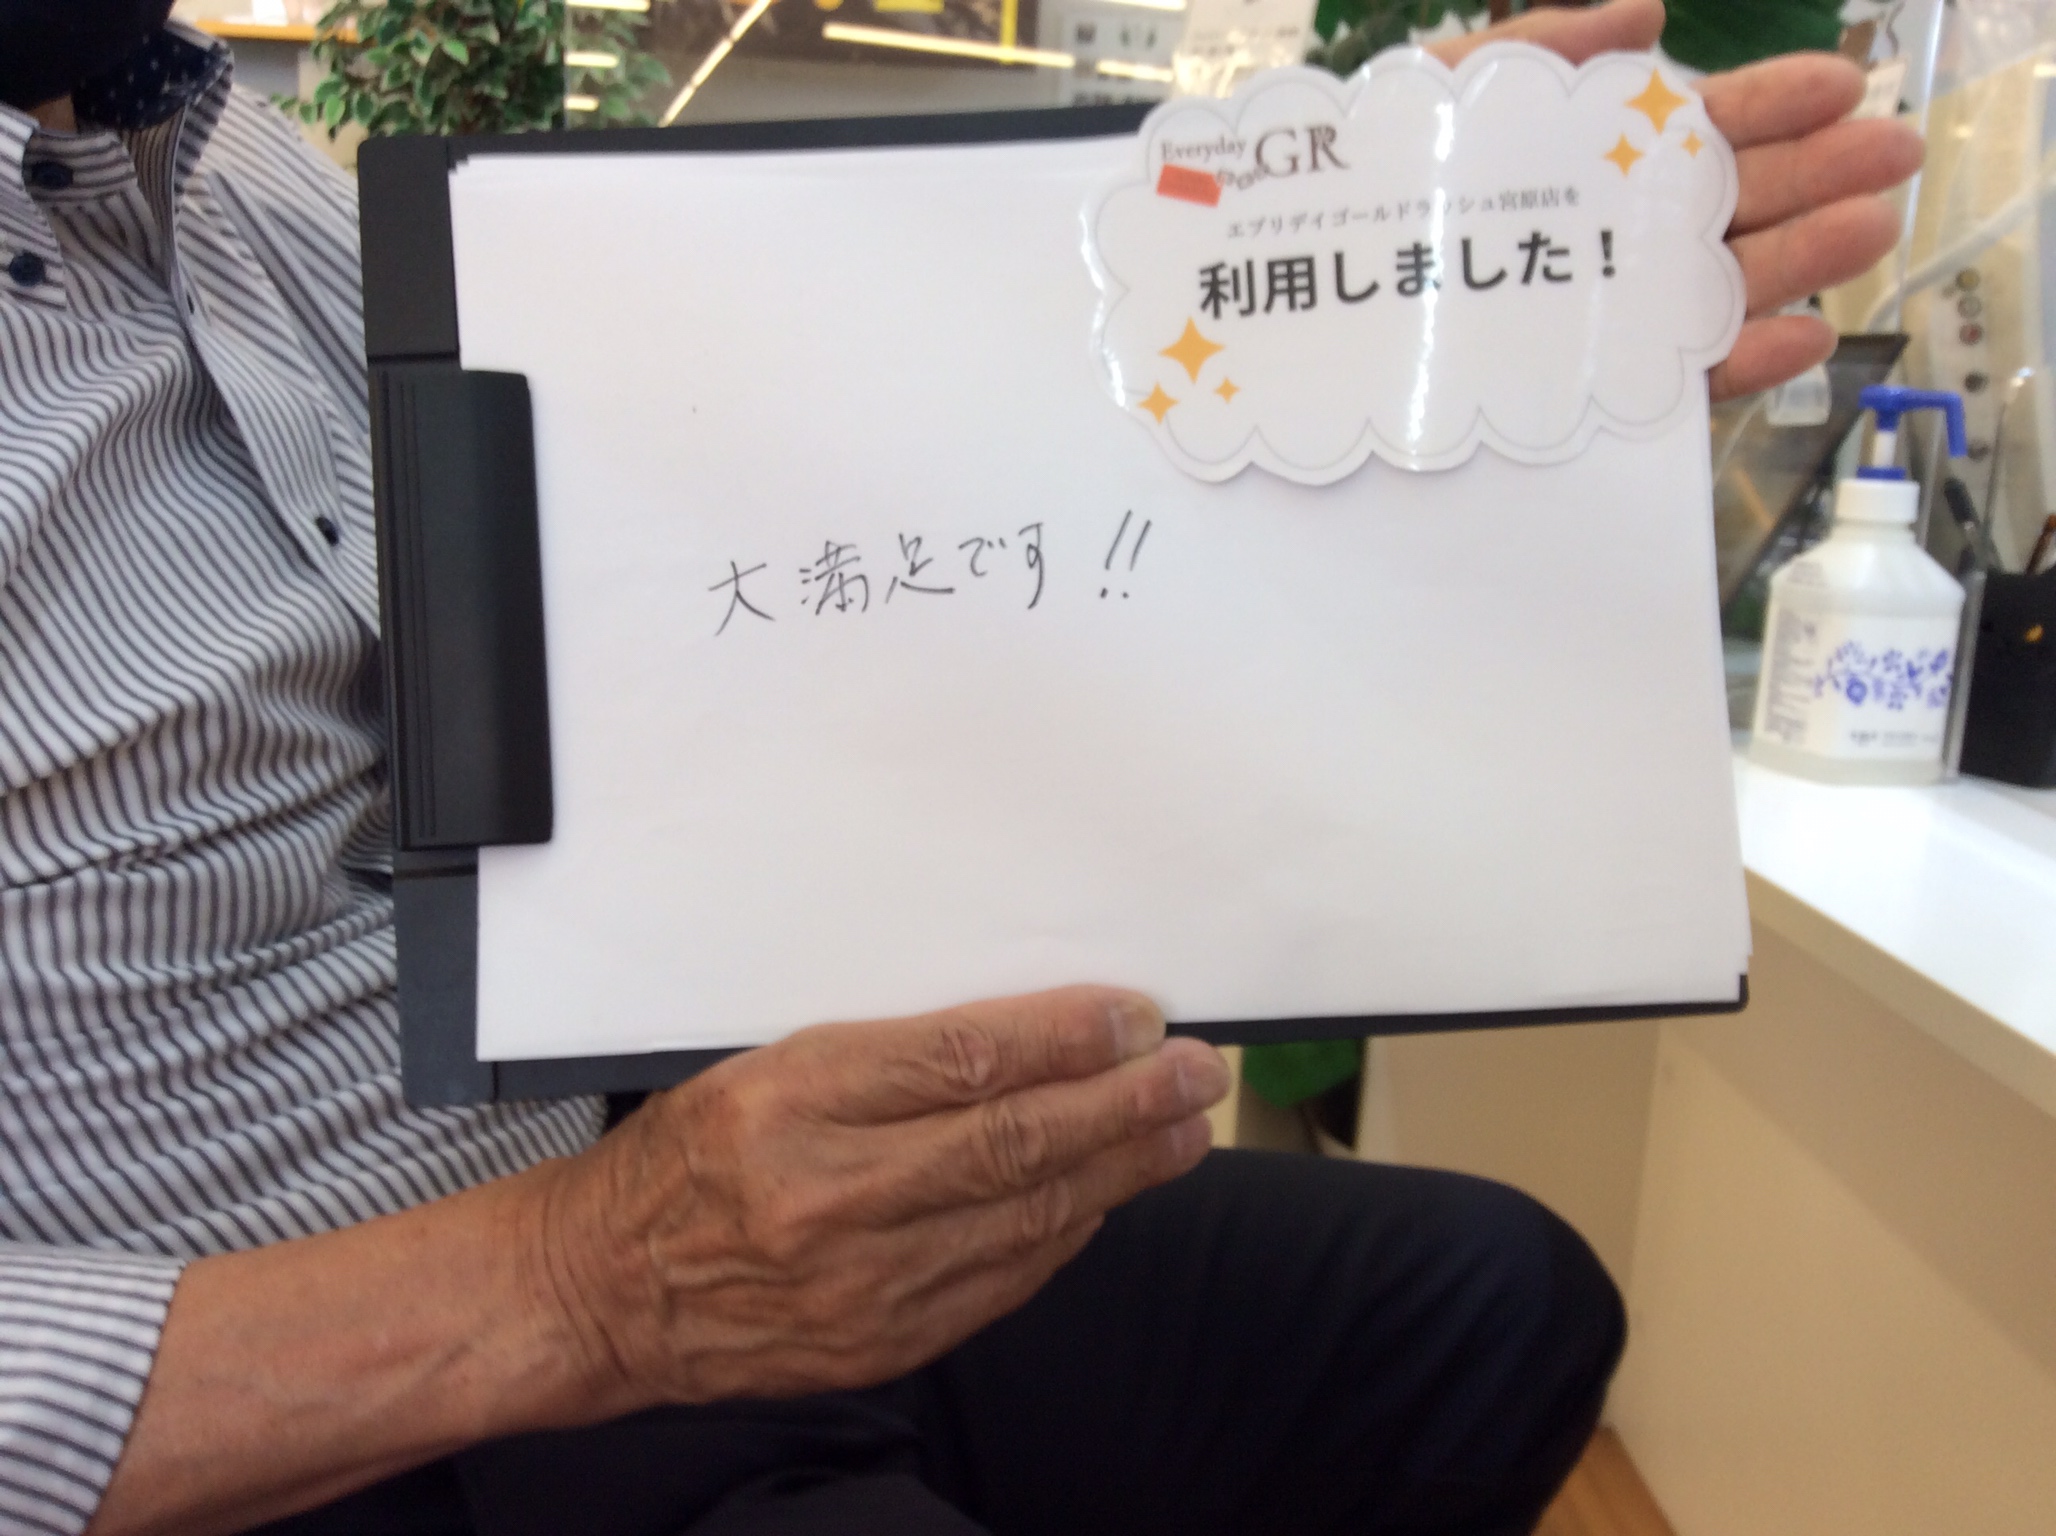 Everyday
GR
エブリデイゴールドラッシュ宮原店を
利用しました！
大満足です!!